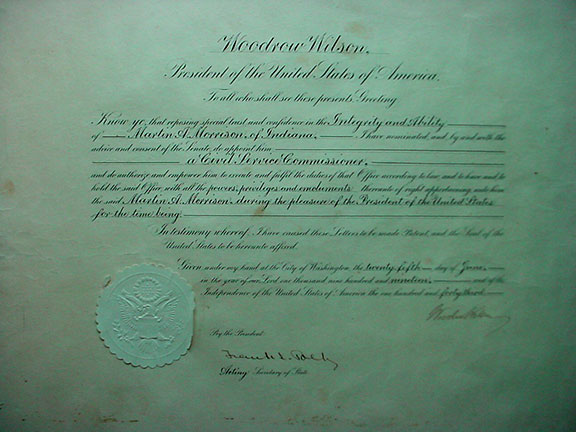 Woodrow Wilson,
President of the United States of America.
To all who shall see these presents, Greeting
Know ye, that reposing special trust and confidence in the Integrity and Ability
of Martin A. Morrison, of Indiana, I have nominated, and by and with the
advice and consent of the Senate, do appoint him
a Civil Service Commissioner,
and do authorize and empower him to execute and fulfil the duties of that Office according to law, and to have and to
hold the said Office, with all the powers, privileges and emoluments thereunto of right appertaining unto him
the said Martin A. Morrison, during the pleasure of the President of the United States
for the time being.
In testimony whereof, I have caused these Letters to be made Patent, and the Seal of the
United States to be hereunto affixed.
Given under my hand at the City of Washington the twenty fifth day of June,
in the year of our Lord one thousand nine hundred and nineteen, and of the
Independence of the United States of America the one hundred and forty third
Woodrow Wilson
By the President:
Frank L. Polk
Acting Secretary of State